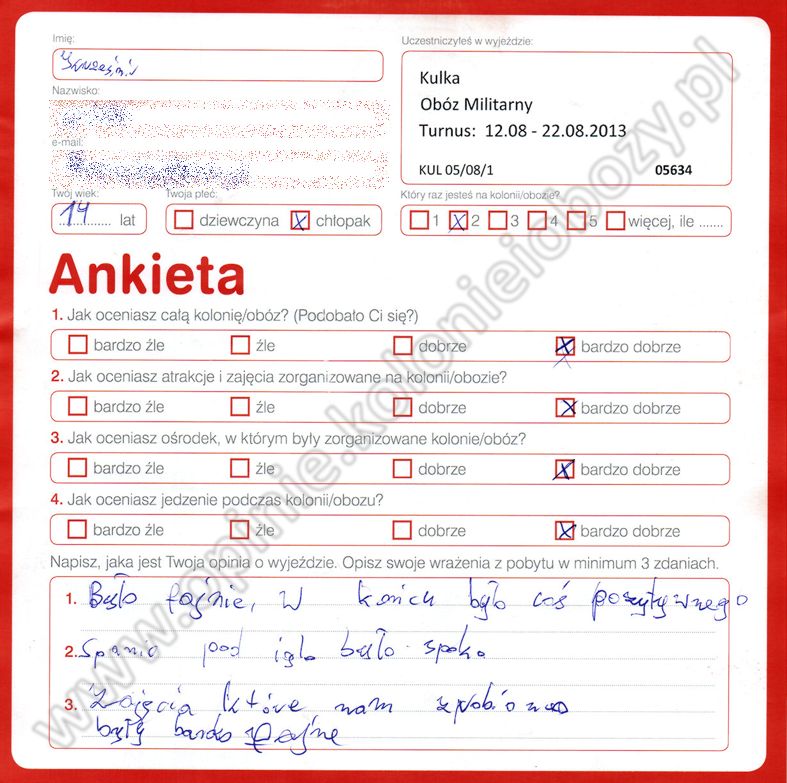 Imię:
Uczestniczyłeś w wyjeździe:
Kulka
Obóz Militarny
Turnus: 12.08 - 22.08.2013
KUL 05/08/1 05634
Nazwisko:
e-mail:
Twój wiek: Twoja płeć: Który raz jesteś na kolonii/obozie?
14 lat dziewczyna X chłopak 1 X 2 3 4 5 więcej, ile .......
Ankieta
1. Jak oceniasz całą kolonię/obóz? (Podobało Ci się?)
bardzo źle źle dobrze X bardzo dobrze
2. Jak oceniasz atrakcje i zajęcia zorganizowane na kolonii/obozie?
bardzo źle źle dobrze X bardzo dobrze
3. Jak oceniasz ośrodek, w którym były zorganizowane kolonie/obóz?
bardzo źle źle dobrze X bardzo dobrze
4. Jak oceniasz jedzenie podczas kolonii/obozu?
bardzo źle źle dobrze X bardzo dobrze
Napisz, jaka jest Twoja opinia o wyjeździe. Opisz swoje wrażenia z pobytu w minimum 3 zdaniach.
1. Było fajnie, w końcu było coś pozytywnego
2. Spanie pod iglo było spoko
3. Zajęcia które nam zrobiono
były bardzo fajne
www.opinie.kolonieiobozy.pl